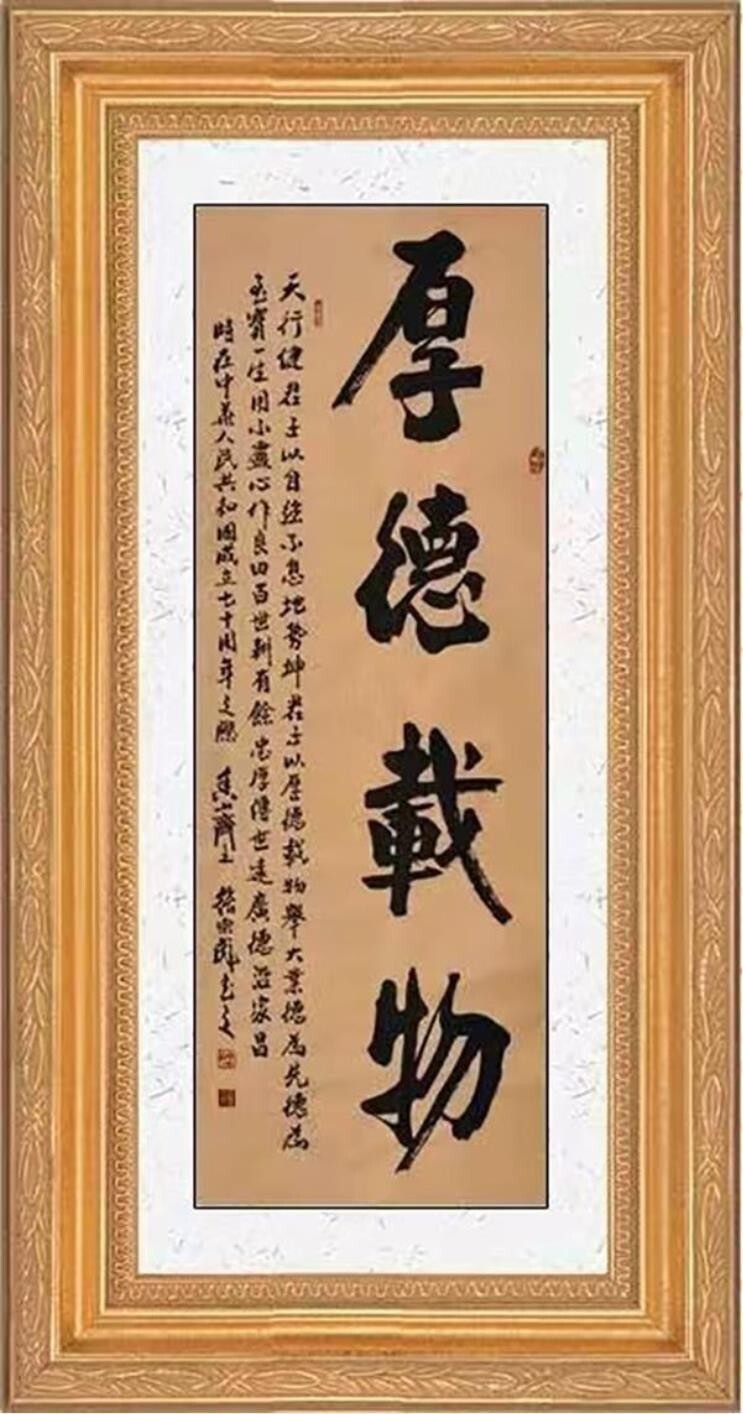 厚德載物
天行健君子以自強不息地勢坤君子以厚德載物舉大業德為先德為
至寶一生用心盡心作良田百世耕有餘忠厚傳世遠廣德潤家昌
時在中華人民共和國成立七十周年之際 香山齋主 書之